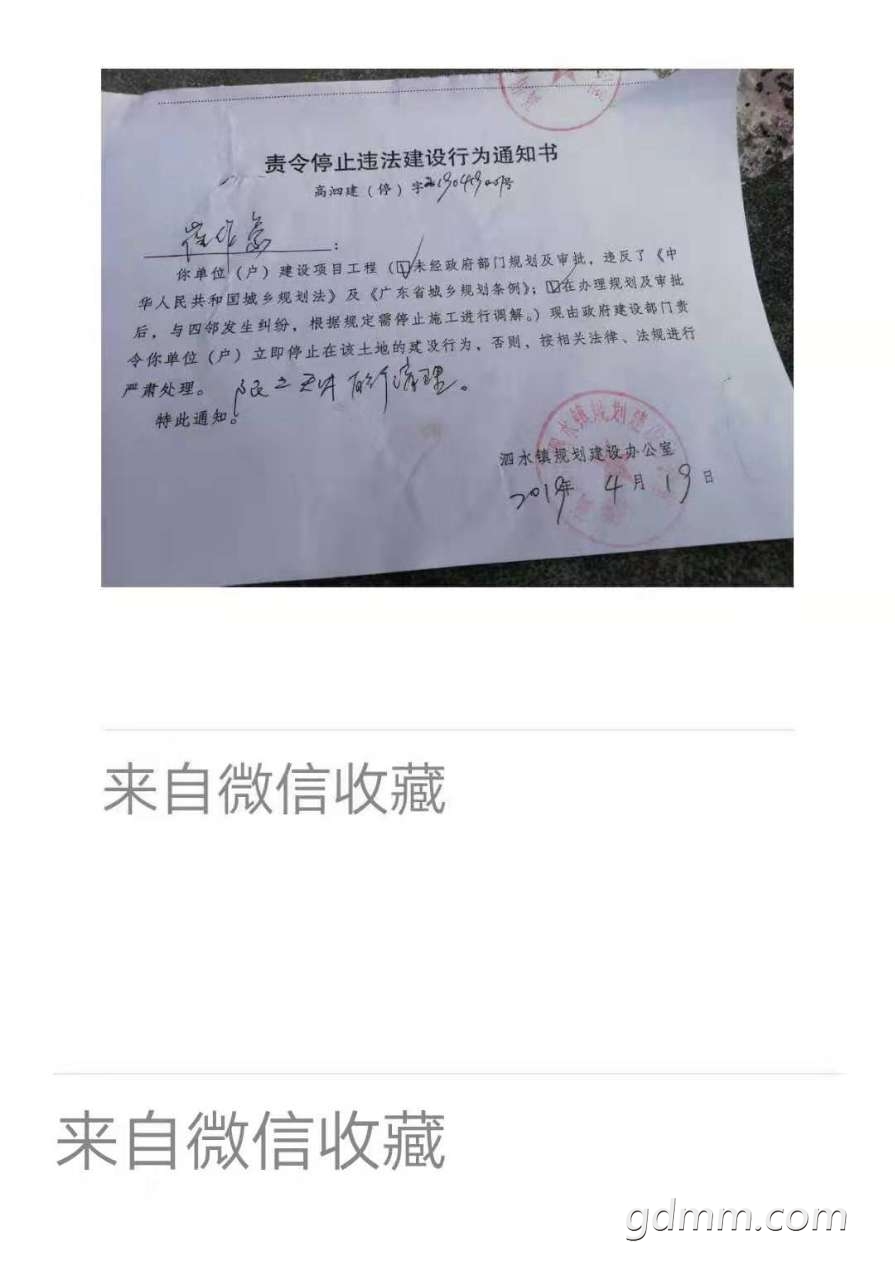 责令停止违法建设行为通知书
高泗建（停）字20190419001号
崔作
：
你单位（户）建设项目工程（☑未经政府部门规划及审批，违反了《中
华人民共和国城乡规划法》及《广东省城乡规划条例》；☑在办理规划及审批
后，与四邻发生纠纷，根据规定需停止施工进行调解。）现由政府建设部门责
令你单位（户）立即停止在该土地的建设行为，否则，按相关法律、法规进行
严肃处理。限三天时自行清理。
特此通知。
泗水镇规划建设办公室
2019年 4月 19日
来自微信收藏
来自微信收藏
gdmm.com